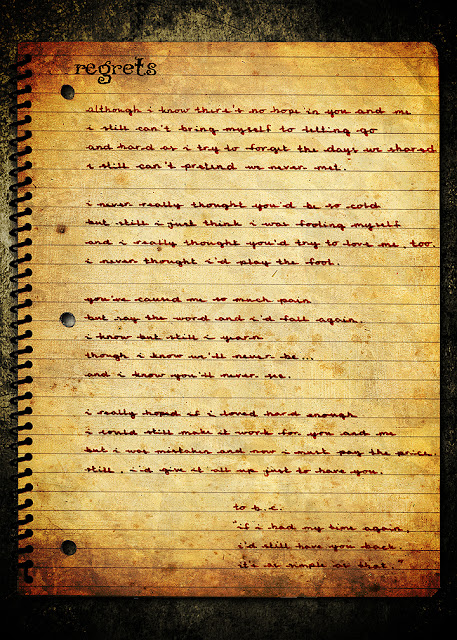 regrets
although i know there's no hope in you and me
i still can't bring myself to letting go
and hard as i try to forget the days we shared
i still can't pretend we never met.
i never really thought you'd be so cold
but still i just think i was fooling myself
and i really thought you'd try to love me, too.
i never thought i'd play the fool.
you've caused me so much pain
but say the word and i'd fall again.
i know but still i yearn
though i know we'll never be...
and i know you'll never see.
i really hoped if i loved hard enough
i could still make it work for you and me
but i was mistaken and now i must pay the price.
still, i'd give it all up just to have you.
to b.c.
"if i had my time again,
i'd still have you back.
it's as simple as that."